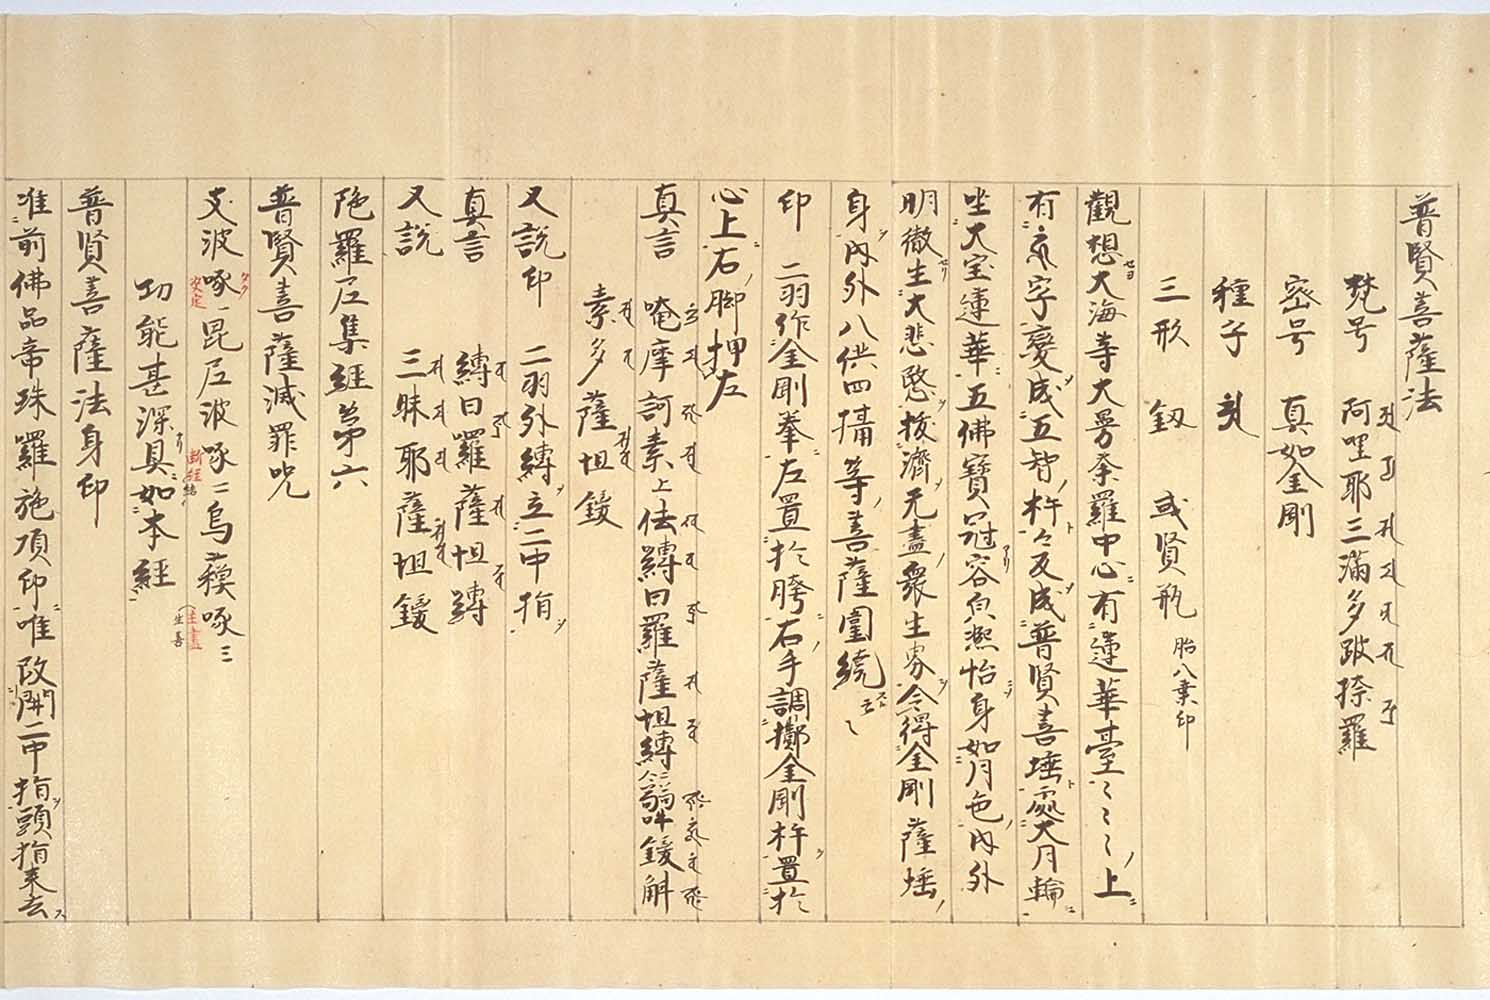 普賢菩薩法
梵号 阿哩耶三滿多跛捺羅
密号 真如金剛
種子
三形 釼 或賢瓶 胎八葉印
觀想大海等大曼荼羅中心有蓮華臺〻〻〻上
有字變成五智杵々反成普賢菩埵處大月輪
坐大宝蓮華五佛寶冠容皃熙怡身如月色内外
明徹生大悲愍拔濟无盡衆生界令得金剛薩埵
身内外八供四攝等菩薩圍繞云〻
印 二羽作金剛拳左置於胯右手調擲金剛杵置於
心上右脚押左
真言 唵摩訶素上佉縛日羅薩怛縛弱吽鍐斛
素多薩怛鍐
又説印 二羽外縛立二中指
真言 縛日羅薩怛縛
又説 三昧耶薩怛鍐
陁羅尼集経第六
普賢菩薩滅罪咒
支波啄一毘尼波啄二烏蘓啄三
功能甚深具如本経
普賢菩薩法身印
准前佛品帝殊羅施項印唯改開二中指頭指来去